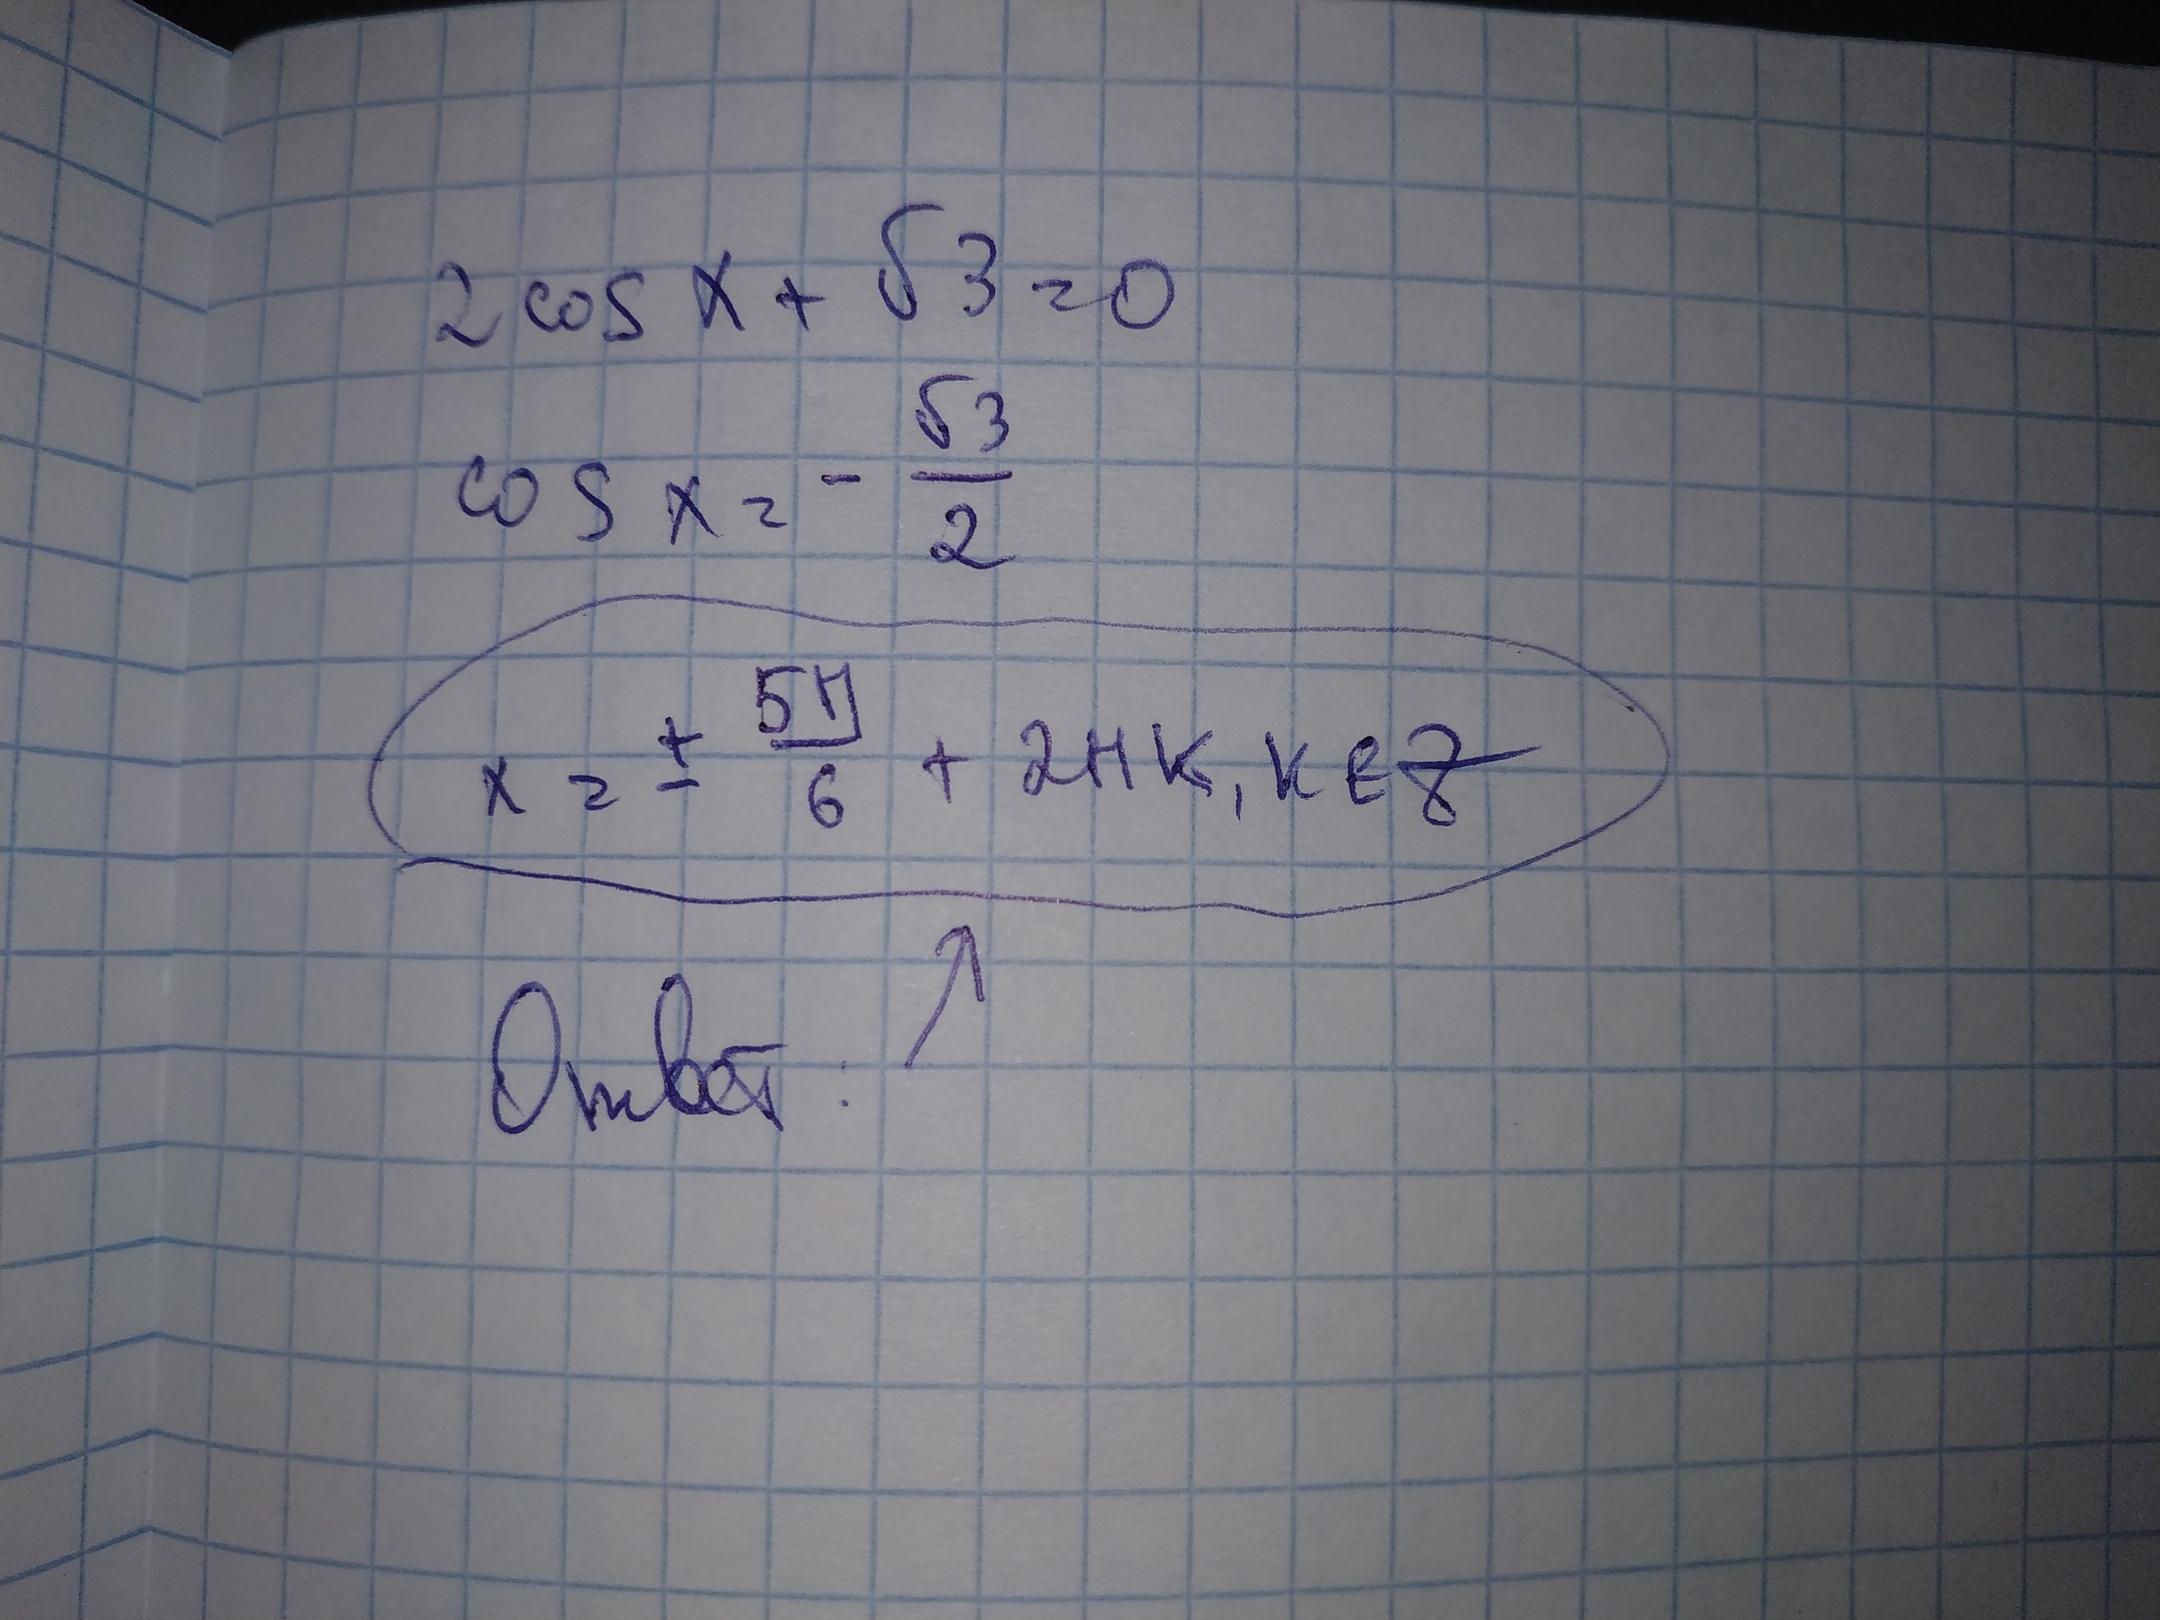 2 cos x + √3 = 0
cos x = - √3/2
x = ± 5П/6 + 2ПК, К ∈ Z
Ответ: